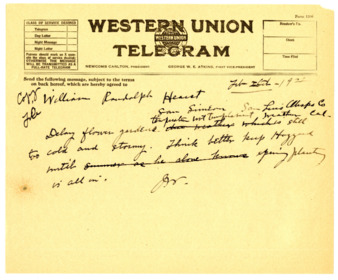 Form 1204
CLASS OF SERVICE DESIRED
Telegram
Day Letter
Night Message
Night Letter
Patrons should mark an X opposite the class of service desired; OTHERWISE THE MESSAGE WILL BE TRANSMITTED AS A FULL-RATE TELEGRAM
WESTERN UNION
TELEGRAM
NEWCOMB CARLTON, PRESIDENT
GEORGE W. E. ATKINS, FIRST VICE-PRESIDENT
Receiver's No.
Check
Time Filed
Send the following message, subject to the terms
on back hereof, which are hereby agreed to
William Randolph Hearst
San Simeon San Luis Obispo Co
Cal.
Delay flower gardens weather which is still
too cold and stormy. Think better keep Hoggard
until summer as he alone knows spring planting
is all in.